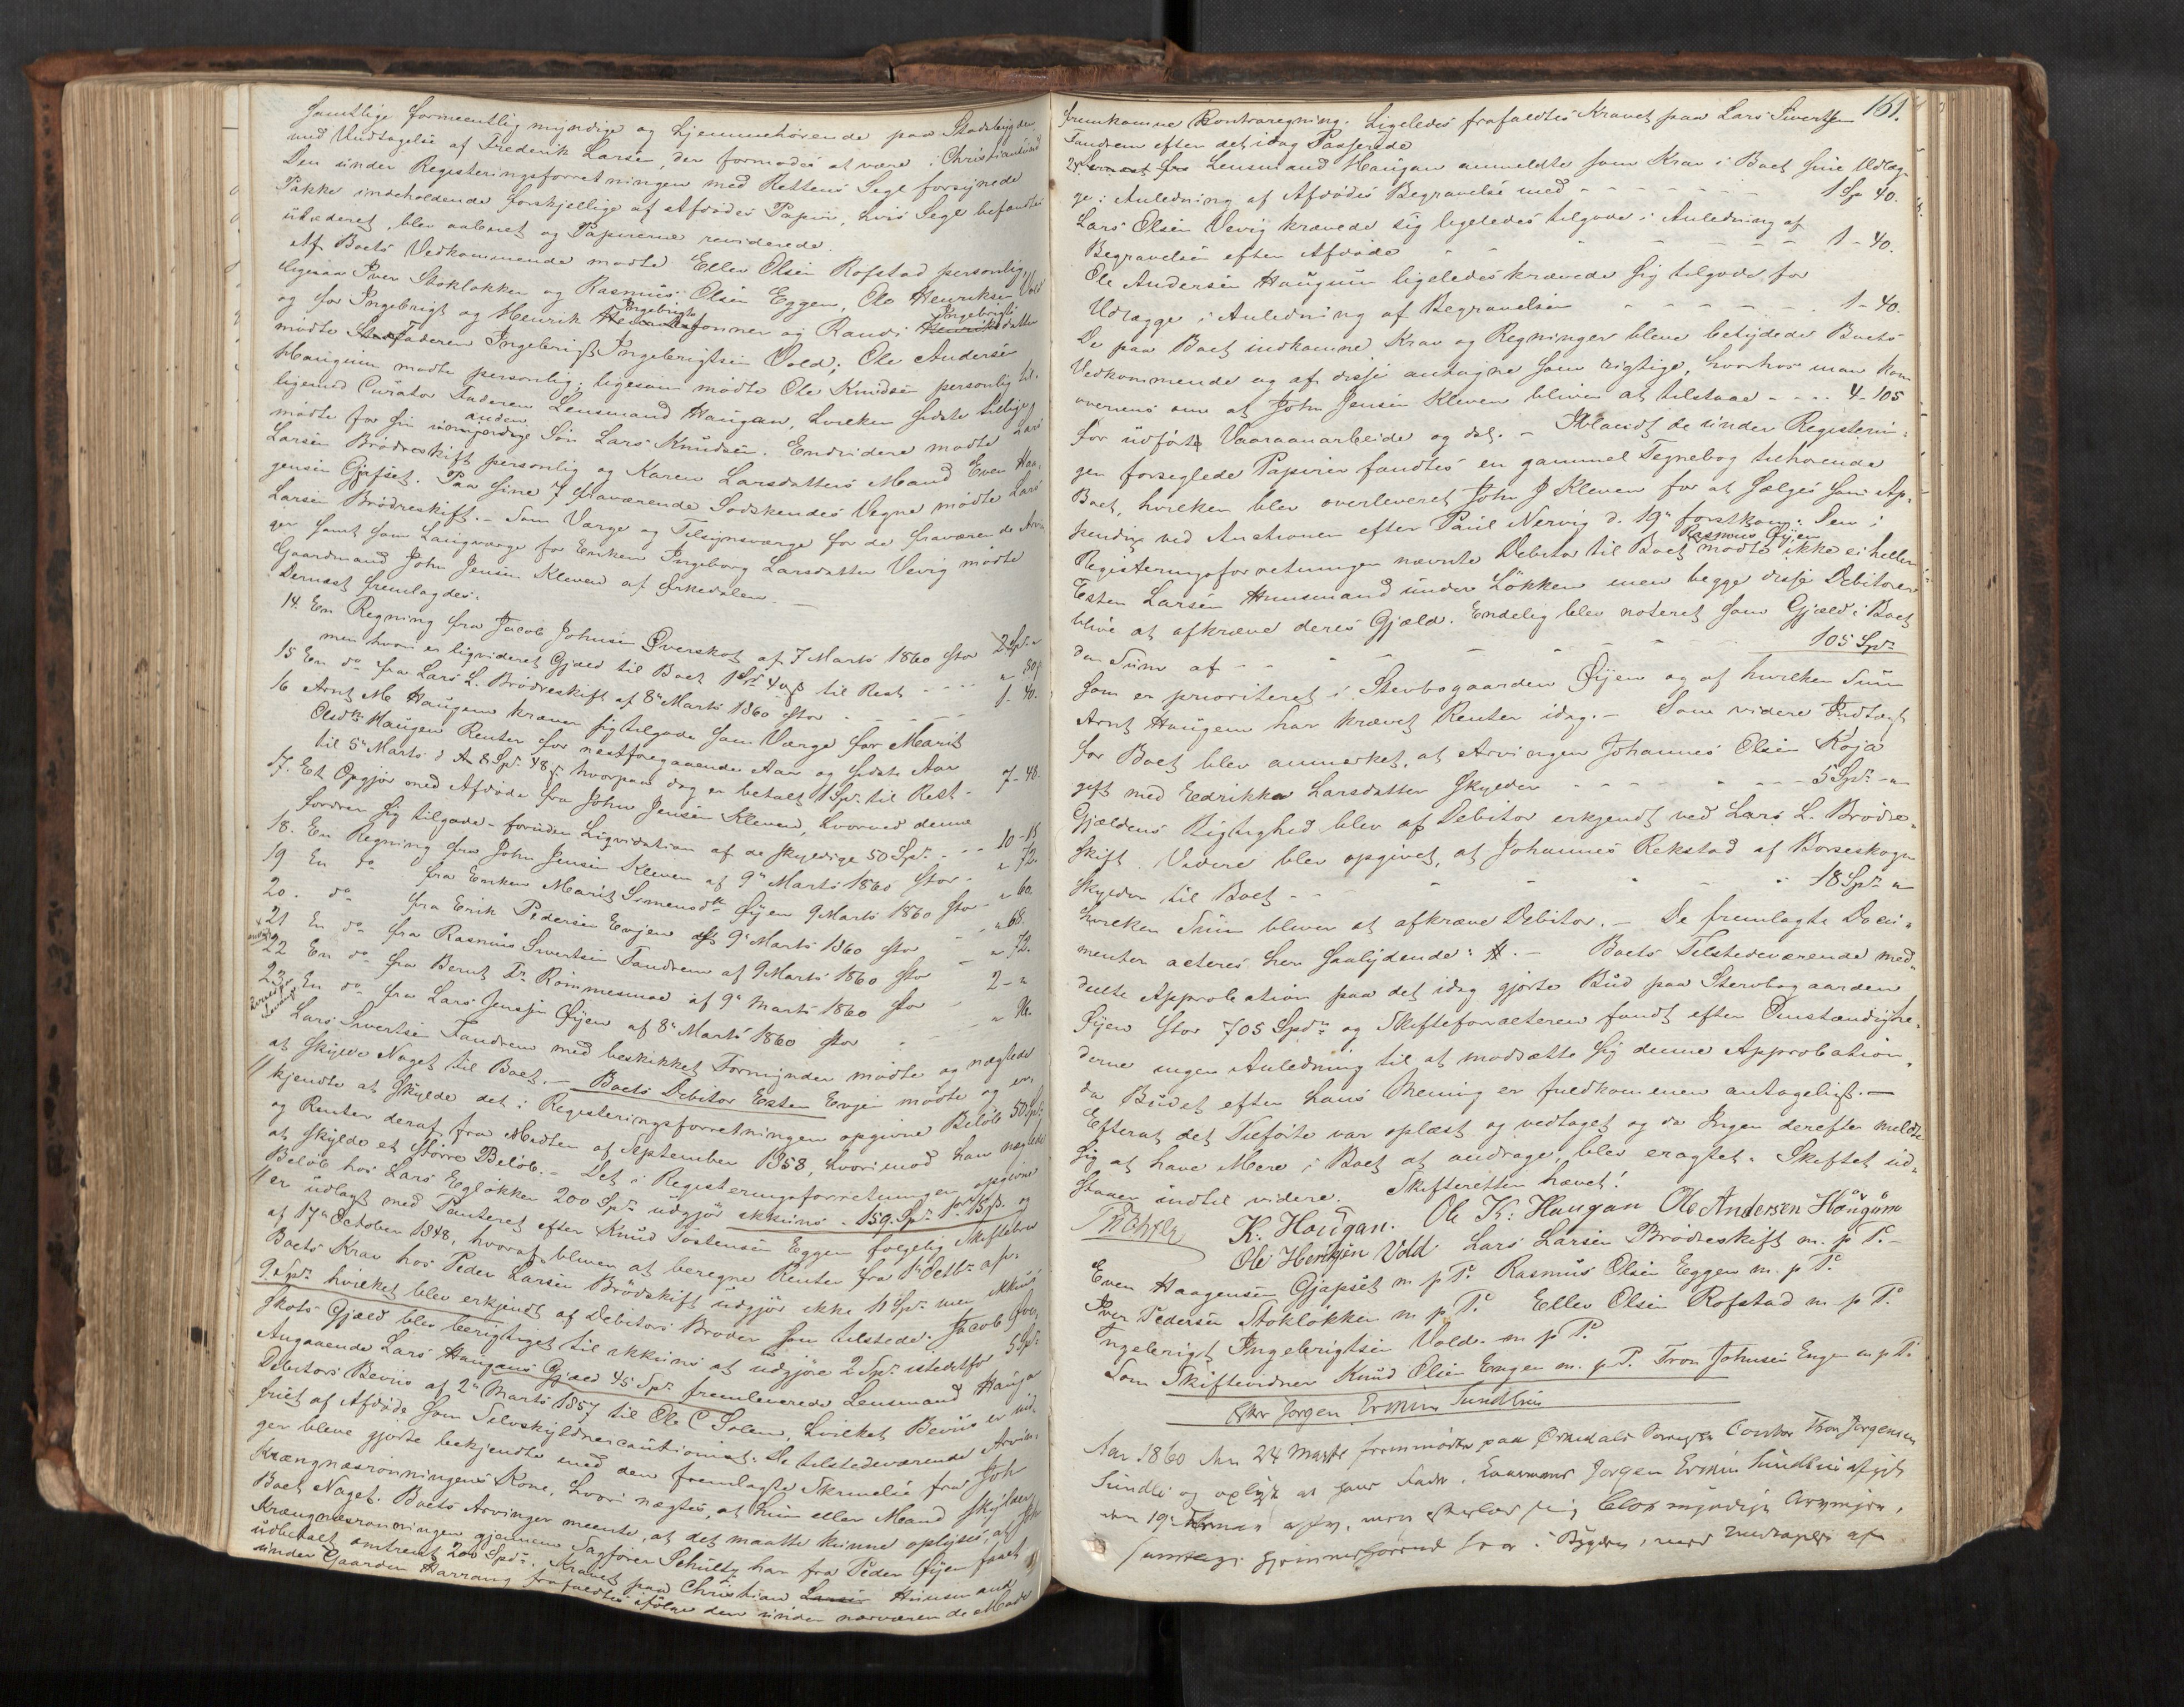 samtlige formeentlig myndige og hjemmehørende paa Stadsbygden
med Undtagelse af Frederik Larsen, der formodes at være i Christiansund
Den under Registeringsforretningen med Rettens Segl forsynede
Pakke indeholdende forskjellige af Afdødes Papirer, hvis Segl befandtes
ubeskadiget, blev aabnet og Papirerne reviderede.
Af Boets Vedkommende mødte Eller Olsen Rofstad personlig
ligesaa Iver Stokløkken og Rasmus Olsen Eggen, Ole Henriksen Vold
og for Ingebrigt og Henrik Ingebrigtsønner og Randi Ingebrigtsdatter
mødte Faderen Ingebrigt Ingebrigtsen Vold; Ole Andersen
Haugum mødte personlig; ligesom mødte Ole Knudsen personlig til-
ligemed Curator Faderen Lensmand Haugan, hvilken sidste tillige
mødte for sin umyndige anden Søn Lars Knudsen. Endvidere mødte Lars
Larsen Brødreskift personlig og Karen Larsdatters Mand Even Haa-
gensen Gjøpset. Paa sine 7 fraværende Sødskendes Vegne mødte Lars
Larsen Brødreskift. - Som Værge og Tilsynsværge for de fraværende Arvin-
ger samt som Laugværge for Enken Ingeborg Larsdatter Vevig mødte
Gaardmand John Jensen Kleven af Orkedalen. -
Dernæst fremlagdes:
14. En Regning fra Jacob Johnsen Øverskot af 7 Marts 1860 stor 2 Spd. "
men hvori er ligvideret Gjæld til Boet 1 Spd 40 ß til Rest - - - - " 80 ß
15 En do fra Lars L. Brødreskift af 8de Marts 1860 stor - - - 1. 40.
16 Arnt M Haugen kræver sig tilgode som Værge for Marit
Olsdtr Haugen Renter for næstforegaaende Aar og sidste Aar
til 5te Marts d A 8 Spd. 48 ß hvorpaa dog er betalt 1 Spd. til Rest - 7-48.
17. Et Opgjør med Afdøde fra John Jensen Kleven, hvorved denne
fordrer sig tilgode - foruden Ligvidation af de skyldige 50 Spd. - - 10-18
18. En Regning fra John Jensen Kleven af 9de Marts 1860 stor - " 72.
19 En do fra Enken Marit Simensdtr Øyen 9 Marts 1860 stor - " 60.
20. do fra Erik Pedersen Evjen af 9de Marts 1860 stor - - " 68.
21 En do fra Rasmus Sivertsen Fandrem af 9 Marts 1860 stor - " 72.
22 En do fra Bernt Dr. Rømmesmoe af 9de Marts 1860 stor 2 - "
23. En do fra Lars Jensen Øyen af 8de Marts 1860 stor - - " 96.
Lars Sivertsen Fandrem med beskikket Formynder mødte og nægtede
at skylde Noget til Boet. - Boets Debitor Esten Evjen mødte og er-
kjendte at skylde det i Registeringsforretningen opgivne Beløb 50 Spd.
og Renter deraf fra Midten af September 1858, hvorimod han nægtede
at skylde et større Beløb. - Det i Registeringsforretningen opgivne
Beløb hos Lars Egløkken 200 Spd. udgjør ikkuns - 159. Spd. 1 15 ß. og
er udlagt med Panteret efter Knud Tostensen Eggen følgelig Skiftebrev
af 17de October 1848, hvoraf bliver at beregne Renter fra 1ste Octbr. af.
Boets Krav hos Peder Larsen Brødskift udgjør ikke 11 Spd. men ikkuns
9. Spd. hvilket blev erkjendt af Debitors Broder som tilstede. Jacob Øver-
skots Gjæld blev berigtiget til ikkuns at udgjøre 2 Spd. istedetfor 5 Spd.
Angaaende Lars Haugans Gjæld 45 Spd. fremleverede Lensmand Haugan
Debitors Beviis af 2de Marts 1857 til Ole C Solem, hvilket Beviis er ind-
friet af Afdøde som Selvskyldnercautionist. De tilstedeværende Arvin-
ger bleve gjorte bekjendte med den fremlagte Skrivelse fra Joh
Krængnæsrønningens Kone, hvori nægtes, at hun eller Mand skylder
Boet Noget. Boets Arvinger meente, at det maatte kunne oplyses, at Joh
Krængnæsrønningen gjennem Sagfører Schultz har fra Peder Øyen faaet
udbetalt omtrent 200 Spd. Kravet paa Christian Huusmand
under Gaarden Harrang frafaldtes ifølge den under nærværende Møde
161.
fremkomne Contraregning. Ligeledes frafaldtes Kravet paa Lars Sivertsen
Fandrem efter det idag Passerede
Lensmand Haugan anmeldte som Krav i Boet sine Udlæg-
ge i Anledning af Afdødes Begravelse med - - - - - - 1 Sp 40.
Lars Olsen Vevig krævede sig ligeledes tilgode i Anledning af
Begravelsen efter Afdøde - - - - - - 1 - 40.
Ole Andersen Haugum ligeledes krævede sig tilgode for
Udlægge i Anledning af Begravelsen - - - - - 1-40.
De paa Boet indkomne Krav og Regninger bleve betydede Boets
Vedkommende og af disse antagne som rigtige, hvorhos man kom
overeens om at John Jensen Kleven bliver at tilstaae - - - - 4-105
for udført Vaaraanarbeide og dsl. - Iblandt de under Registerin-
gen forseglede Papirer fandtes en gammel Tegnebog tilhørende
Boet, hvilken blev overleveret John J Kleven for at sælges som Ap-
pendix ved Auctionen efter Paul Nervig d. 19de førstkom. Den i
Registeringsforretningen nævnte Debitor til Boet Rasmus Øyen mødte ikke ei heller
Esten Larsen Huusmand under Løkken men begge disse Debitorer
blive at afkræve deres Gjæld. Endelig blev noteret som Gjæld i Boet
den Sum af - - - - - - 105 Spd.
som er prioriteret i Stervbogaarden Øyen og af hvilken Sum
Arnt Haugen har krævet Renter idag. - Som videre Indtægt
for Boet blev anmerket, at Arvingen Johannes Olsen Roja
gift med Edrikka Larsdatter skylder - - - - - - 5 Spd. - "
Gjældens Rigtighed blev af Debitor erkjendt ved Lars L. Brødre-
skift. Videre blev opgivet, at Johannes Rekstad af Børseskogn
skylder til Boet - - - - - - 18 Spd. "
hvilken Sum bliver at afkræve Debitor. - De fremlagte Docu-
menter acteres her saalydende: #. - Boets Tilstedeværende med-
deelte Approbation paa det idag gjorte Bud paa Stervbogaarden
Øyen stor 705 Spd. og Skifteforvalteren fandt efter Omstændighe-
derne ingen Anledning til at modsætte sig denne Approbation,
da Budet efter hans Mening er fuldkommen antageligt. -
Efterat det Tilførte var oplæst og vedtaget og da Ingen derefter meldte
sig at have Mere i Boet at andrage, blev eragtet: Skiftet ud-
staaer indtil videre. Skifteretten hævet!
K: Haugan. Ole K: Haugan Ole Andersen Haugum
Ole Henrksen Vold Lars Larsen Brødreskift m. p P. -
Even Haagensen Gjøpset m p P. Rasmus Olsen Eggen m. p P.
Iver Pedersen Stokløkken m. p. P. Eller Olsen Rofstad m. p P.
Ingebrigt Ingebrigtsen Vold. m p P.
Som Skiftevidner Knud Olsen Engen m. p. P. Tron Johnsen Engen m p P.
Efter Jørgen Sundlim
Aar 1860 den 24 Marts fremmødte paa Orkedals Contoir Thor Jørgensen
Sundli og oplyste at hans Fader, Jørgen Sundlim afgik
den 19de